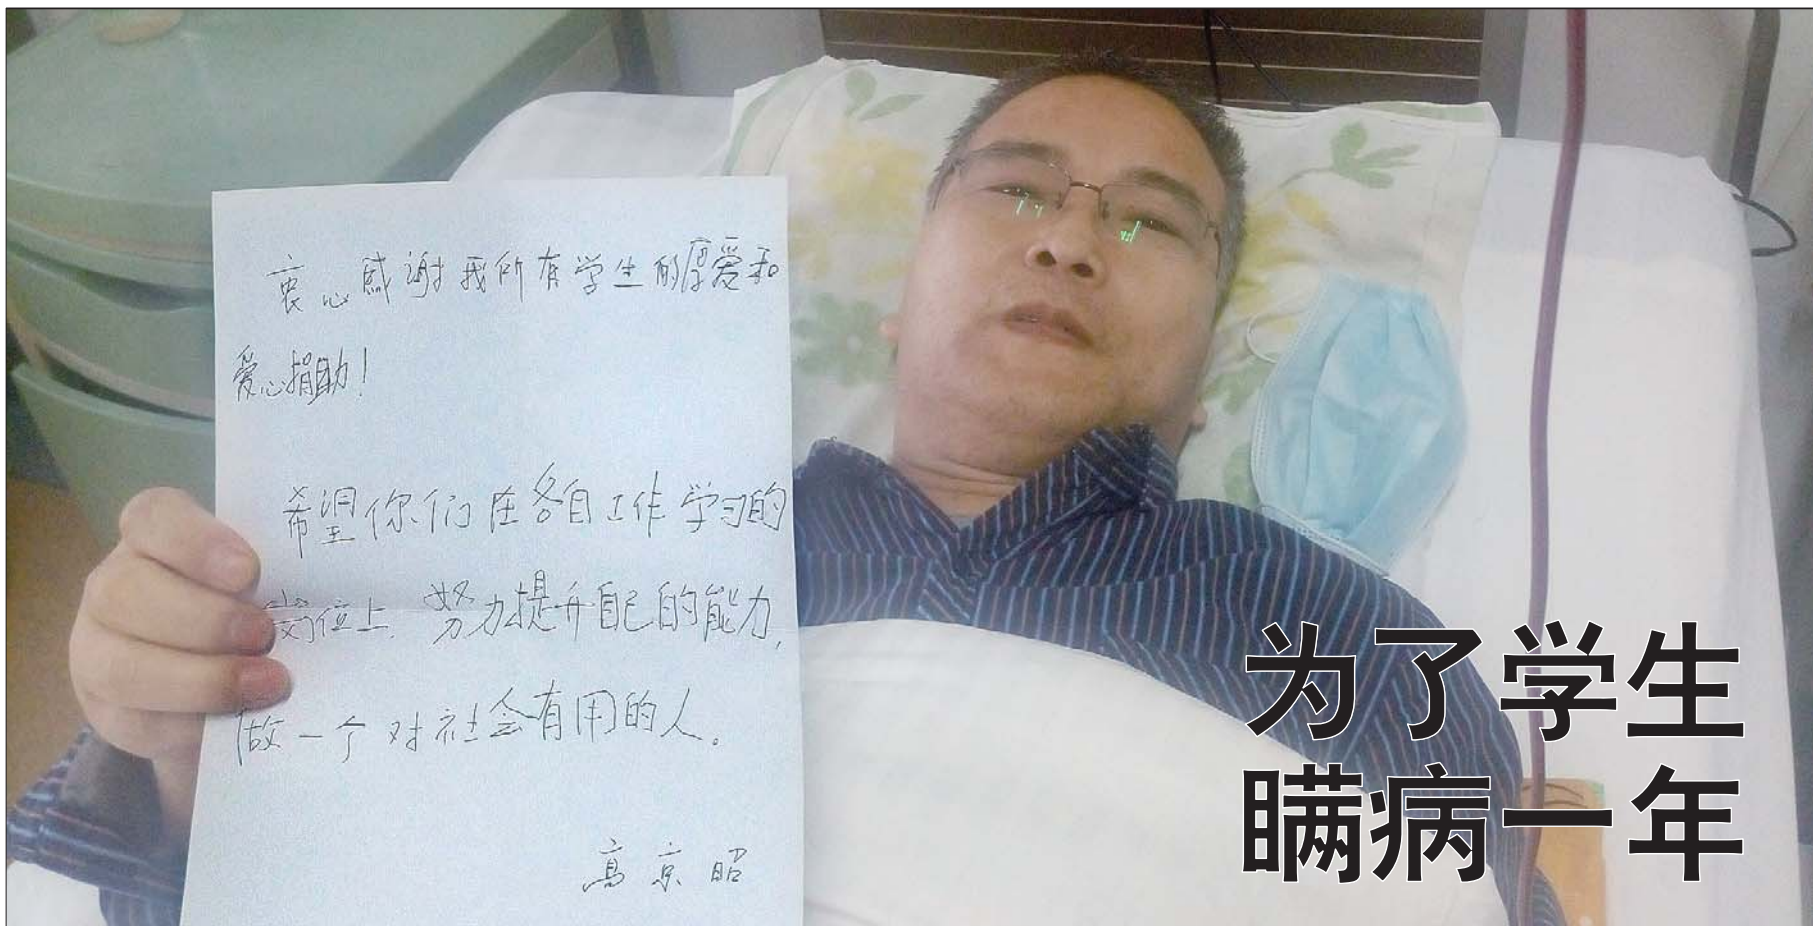 衷心感谢我所有学生的厚爱和
爱心捐助！
希望你们在各自工作学习的
岗位上，努力提升自己的能力，
做一个对社会有用的人。
高京昭
为了学生
瞒病一年